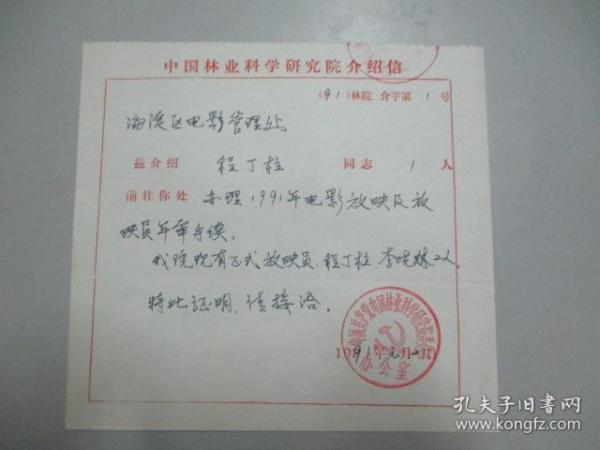 中国林业科学研究院介绍信
（91）林院 介字第 1 号
海淀区电影管理处
兹介绍 程丁柱 同志 1 人
前往你处 办理1991年电影放映及放
映员年审手续。
我院现有正式放映员，程丁柱、李晓妹二人。
特此证明，请接洽。
1991年元月
中国共产党中国林业科学研究院委员会
办公室
孔夫子旧书网
www.kongfz.com